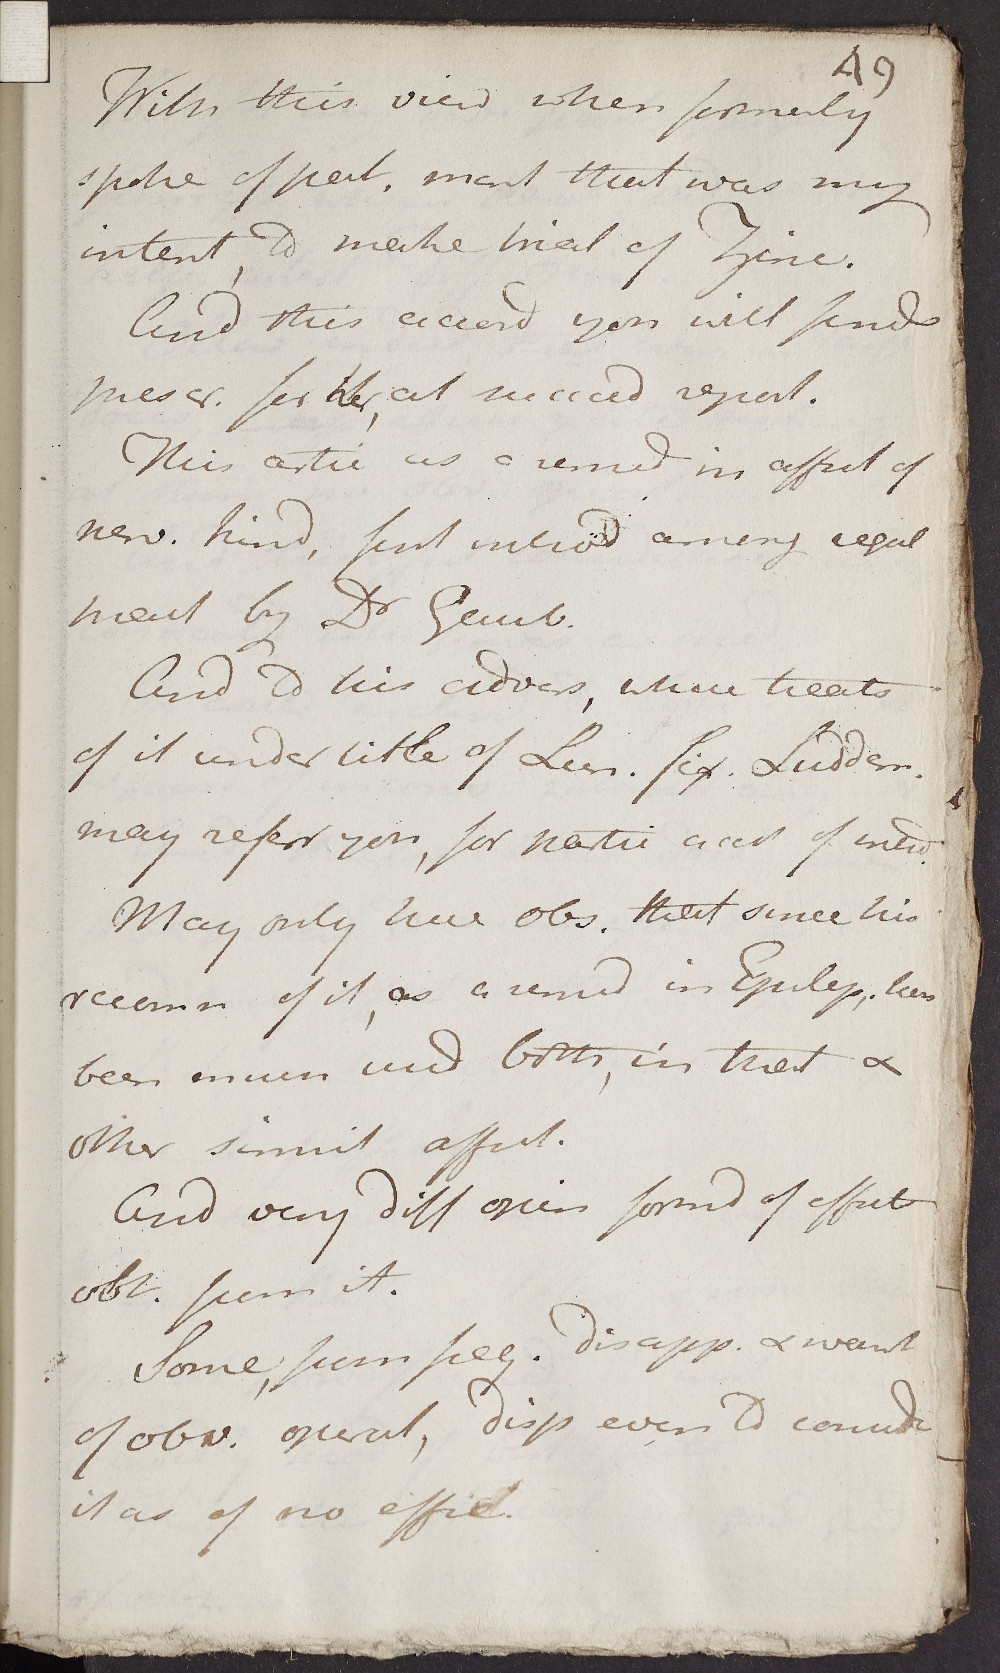 49
With this view when formerly
spoke of pat. ment that was my
intent, to make trial of Zinc.
And this accord you will find
prescr. for her, at succeed report.
This artic as a remed in affect of
nerv. kind, first introd among regul
pract by Dr Gaub.
And to his advers, where treats
of it under title of Lun. fix. Luddem.
may refer you, for partic acct of med.
May only here obs. that since his
recomm of it, as a remed in Epilep, has
been much used both, in that &
other simil affect.
And very diff opin formd of effects
obt. from it.
Some, from freq. disapp. & want
of obv. operat, disp even to consider
it as of no effic.